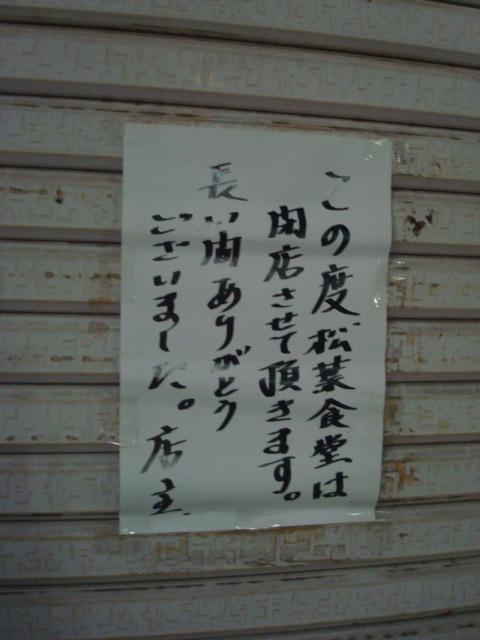 この度松葉食堂は
閉店させて頂きます。
長い間ありがとう
ございました。店主